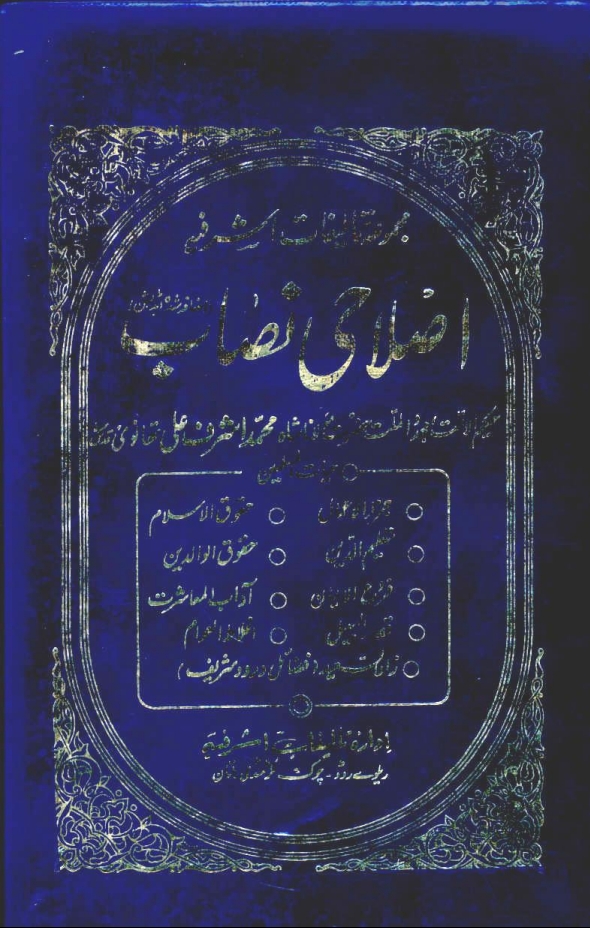 مجموعہ تالیفات اشرفیہ
اصلاحی نصاب
حکیم الامت مجدد الملت حضرت مولانا شاہ محمد اشرف علی تھانوی
جزاء الاعمال ○ حقوق الاسلام
تعلیم الدین ○ حقوق الوالدین
فروع الایمان ○ آداب المعاشرت
قصد السبیل ○ اغلاط العوام
زاد السعید (فضائل درود شریف)
ادارہ تالیفات اشرفیہ
ریلوے روڈ ۔ چوک